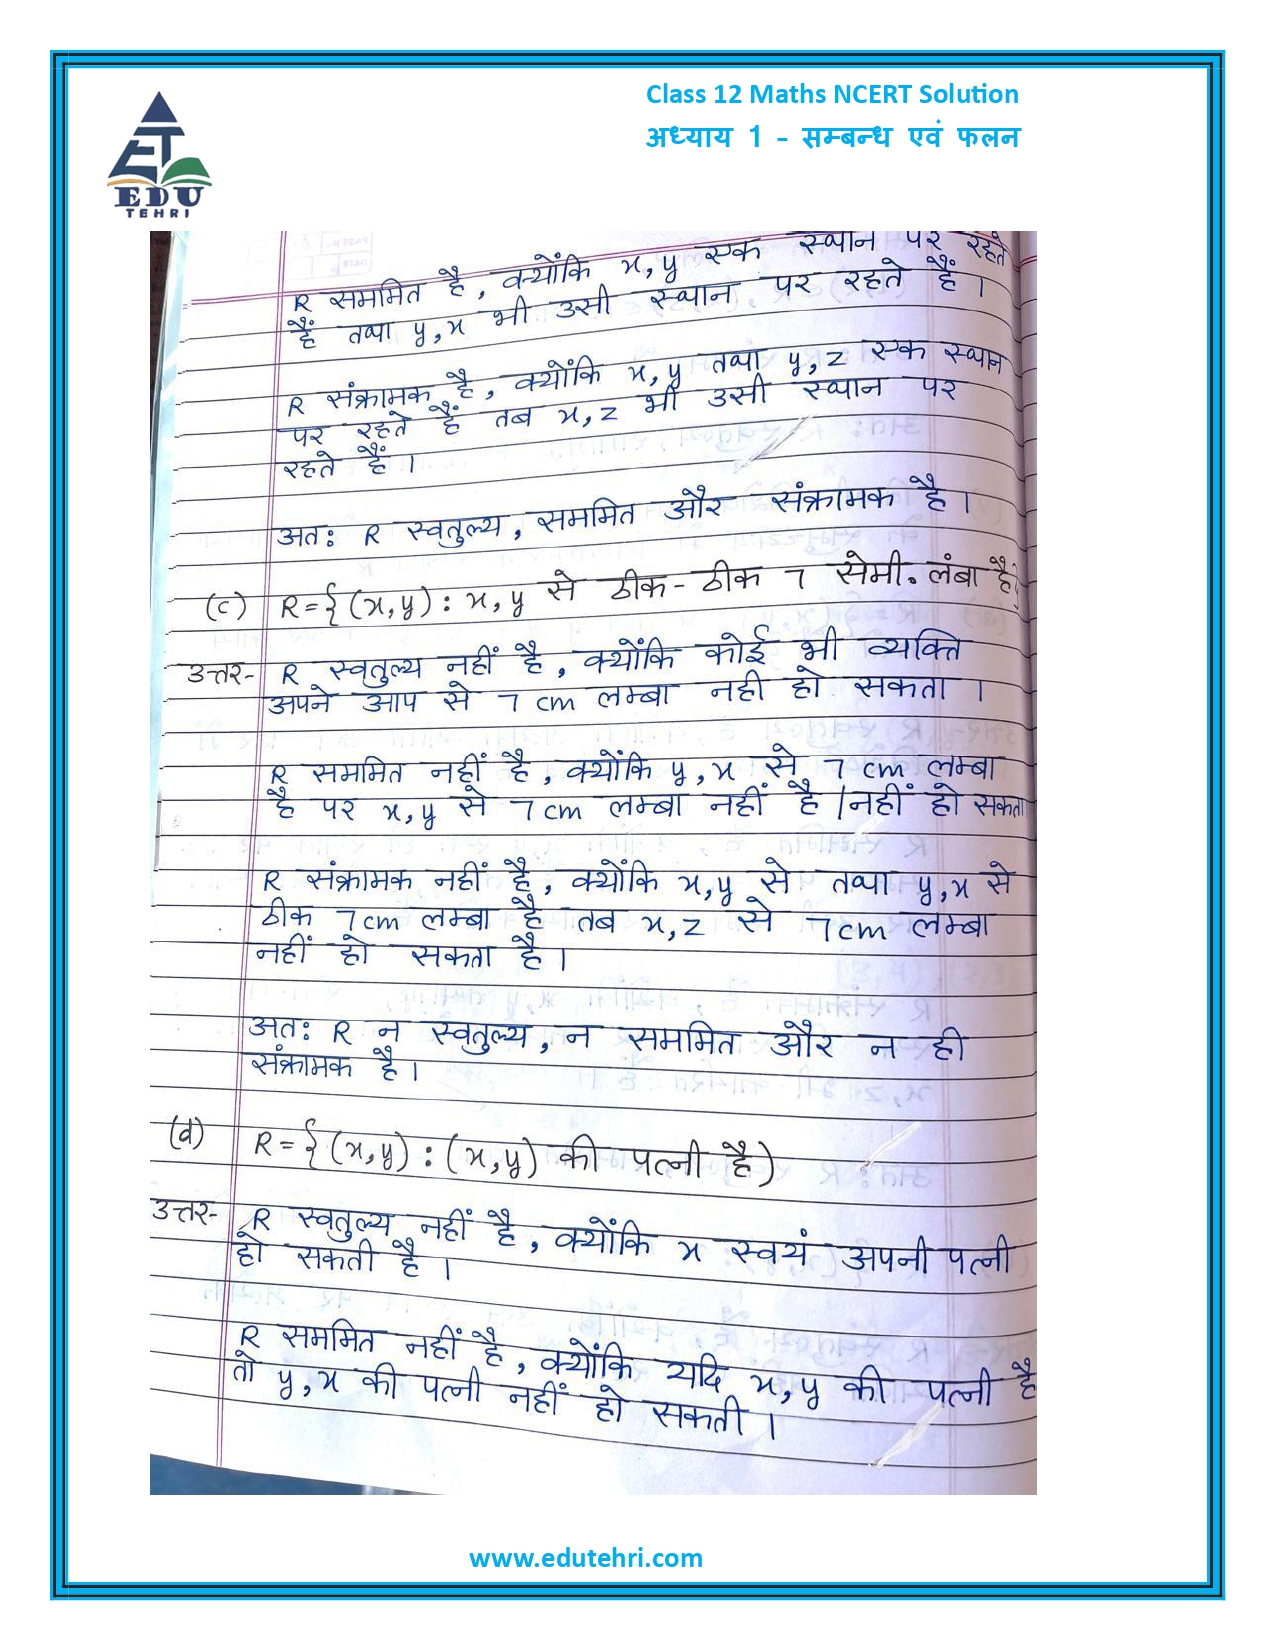 Class 12 Maths NCERT Solution
अध्याय 1 - सम्बन्ध एवं फलन
EDU
TEHRI
R सममित है, क्योंकि x, y एक स्थान पर रहते
हैं तथा y, x भी उसी स्थान पर रहते हैं।
R संक्रामक है, क्योंकि x, y तथा y, z एक स्थान
पर रहते हैं तब x, z भी उसी स्थान पर
रहते हैं।
अत: R स्वतुल्य, सममित और संक्रामक है।
(c) R={(x,y) : x, y से ठीक-ठीक 7 सेमी. लंबा है}
उत्तर- R स्वतुल्य नहीं है, क्योंकि कोई भी व्यक्ति
अपने आप से 7 cm लम्बा नही हो सकता।
R सममित नहीं है, क्योंकि y, x से 7 cm लम्बा
है पर x, y से 7 cm लम्बा नहीं है / नहीं हो सकता
R संक्रामक नहीं है, क्योंकि x, y से तथा y, x से
ठीक 7 cm लम्बा है तब x, z से 7 cm लम्बा
नहीं हो सकता है।
अत: R न स्वतुल्य, न सममित और न ही
संक्रामक है।
(d) R={(x,y) : (x,y) की पत्नी है)
उत्तर- R स्वतुल्य नहीं है, क्योंकि x स्वयं अपनी पत्नी
हो सकती है।
R सममित नहीं है, क्योंकि यदि x, y की पत्नी है
तो y, x की पत्नी नहीं हो सकती।
www.edutehri.com